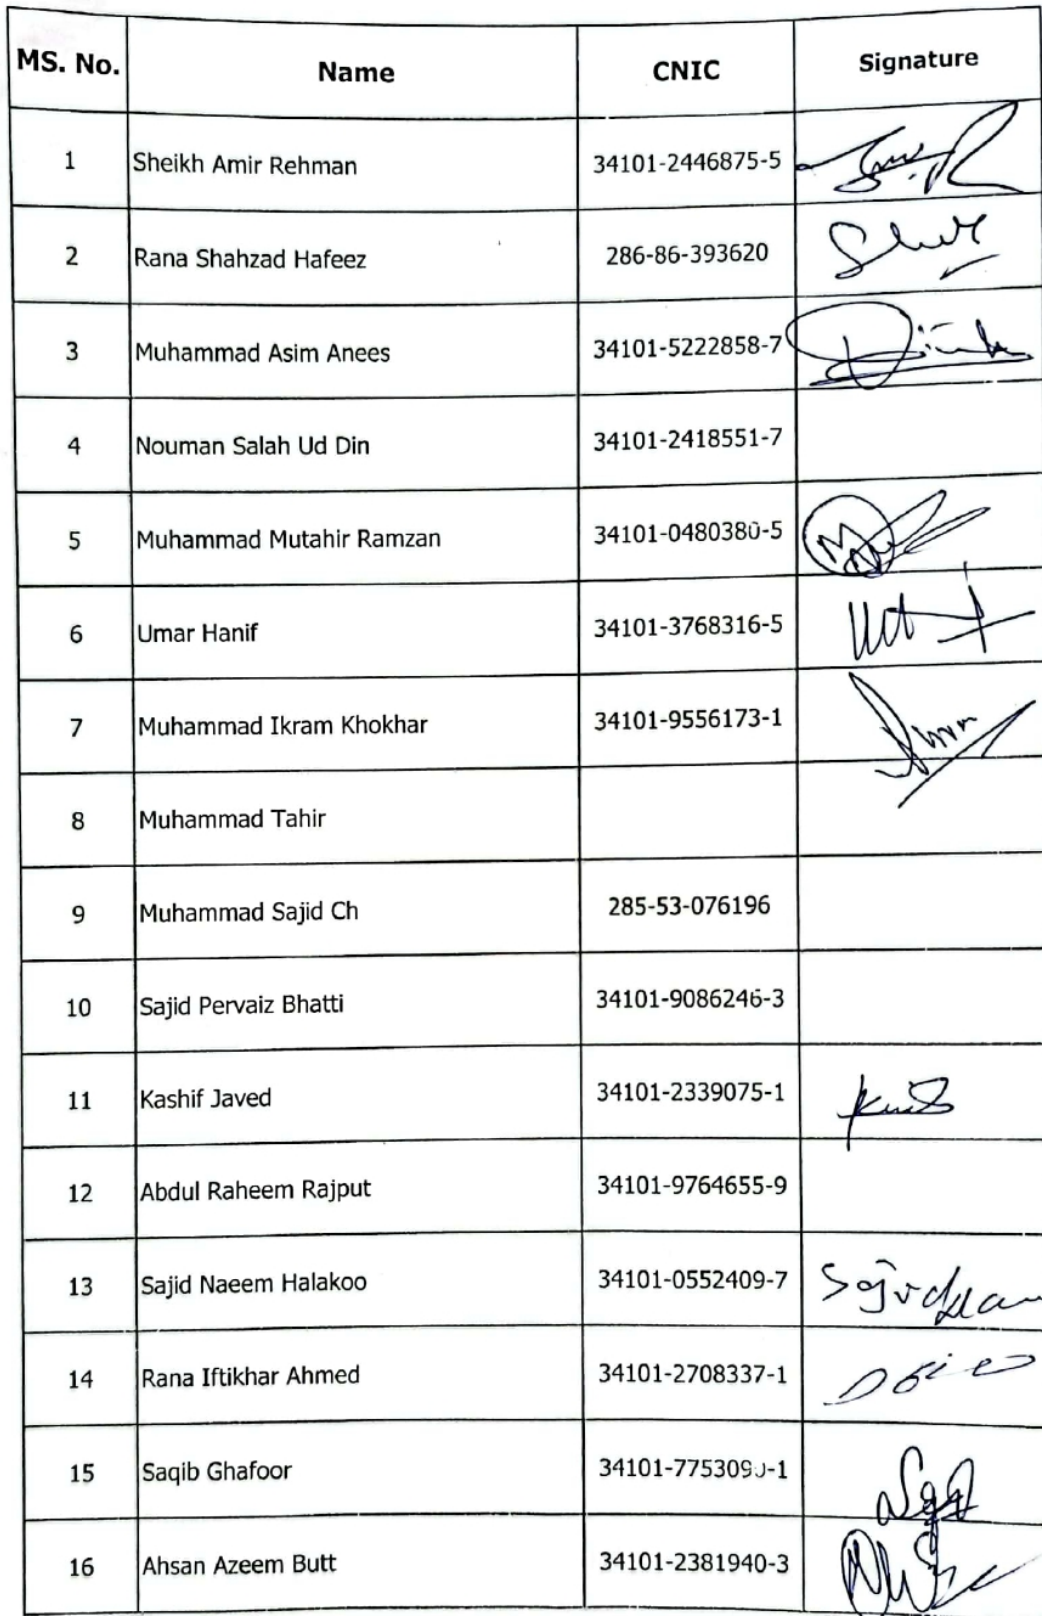 MS. No. Name CNIC Signature
1 Sheikh Amir Rehman 34101-2446875-5
2 Rana Shahzad Hafeez 286-86-393620
3 Muhammad Asim Anees 34101-5222858-7
4 Nouman Salah Ud Din 34101-2418551-7
5 Muhammad Mutahir Ramzan 34101-0480380-5
6 Umar Hanif 34101-3768316-5
7 Muhammad Ikram Khokhar 34101-9556173-1
8 Muhammad Tahir
9 Muhammad Sajid Ch 285-53-076196
10 Sajid Pervaiz Bhatti 34101-9086246-3
11 Kashif Javed 34101-2339075-1
12 Abdul Raheem Rajput 34101-9764655-9
13 Sajid Naeem Halakoo 34101-0552409-7
14 Rana Iftikhar Ahmed 34101-2708337-1
15 Saqib Ghafoor
16 Ahsan Azeem Butt 34101-2381940-3